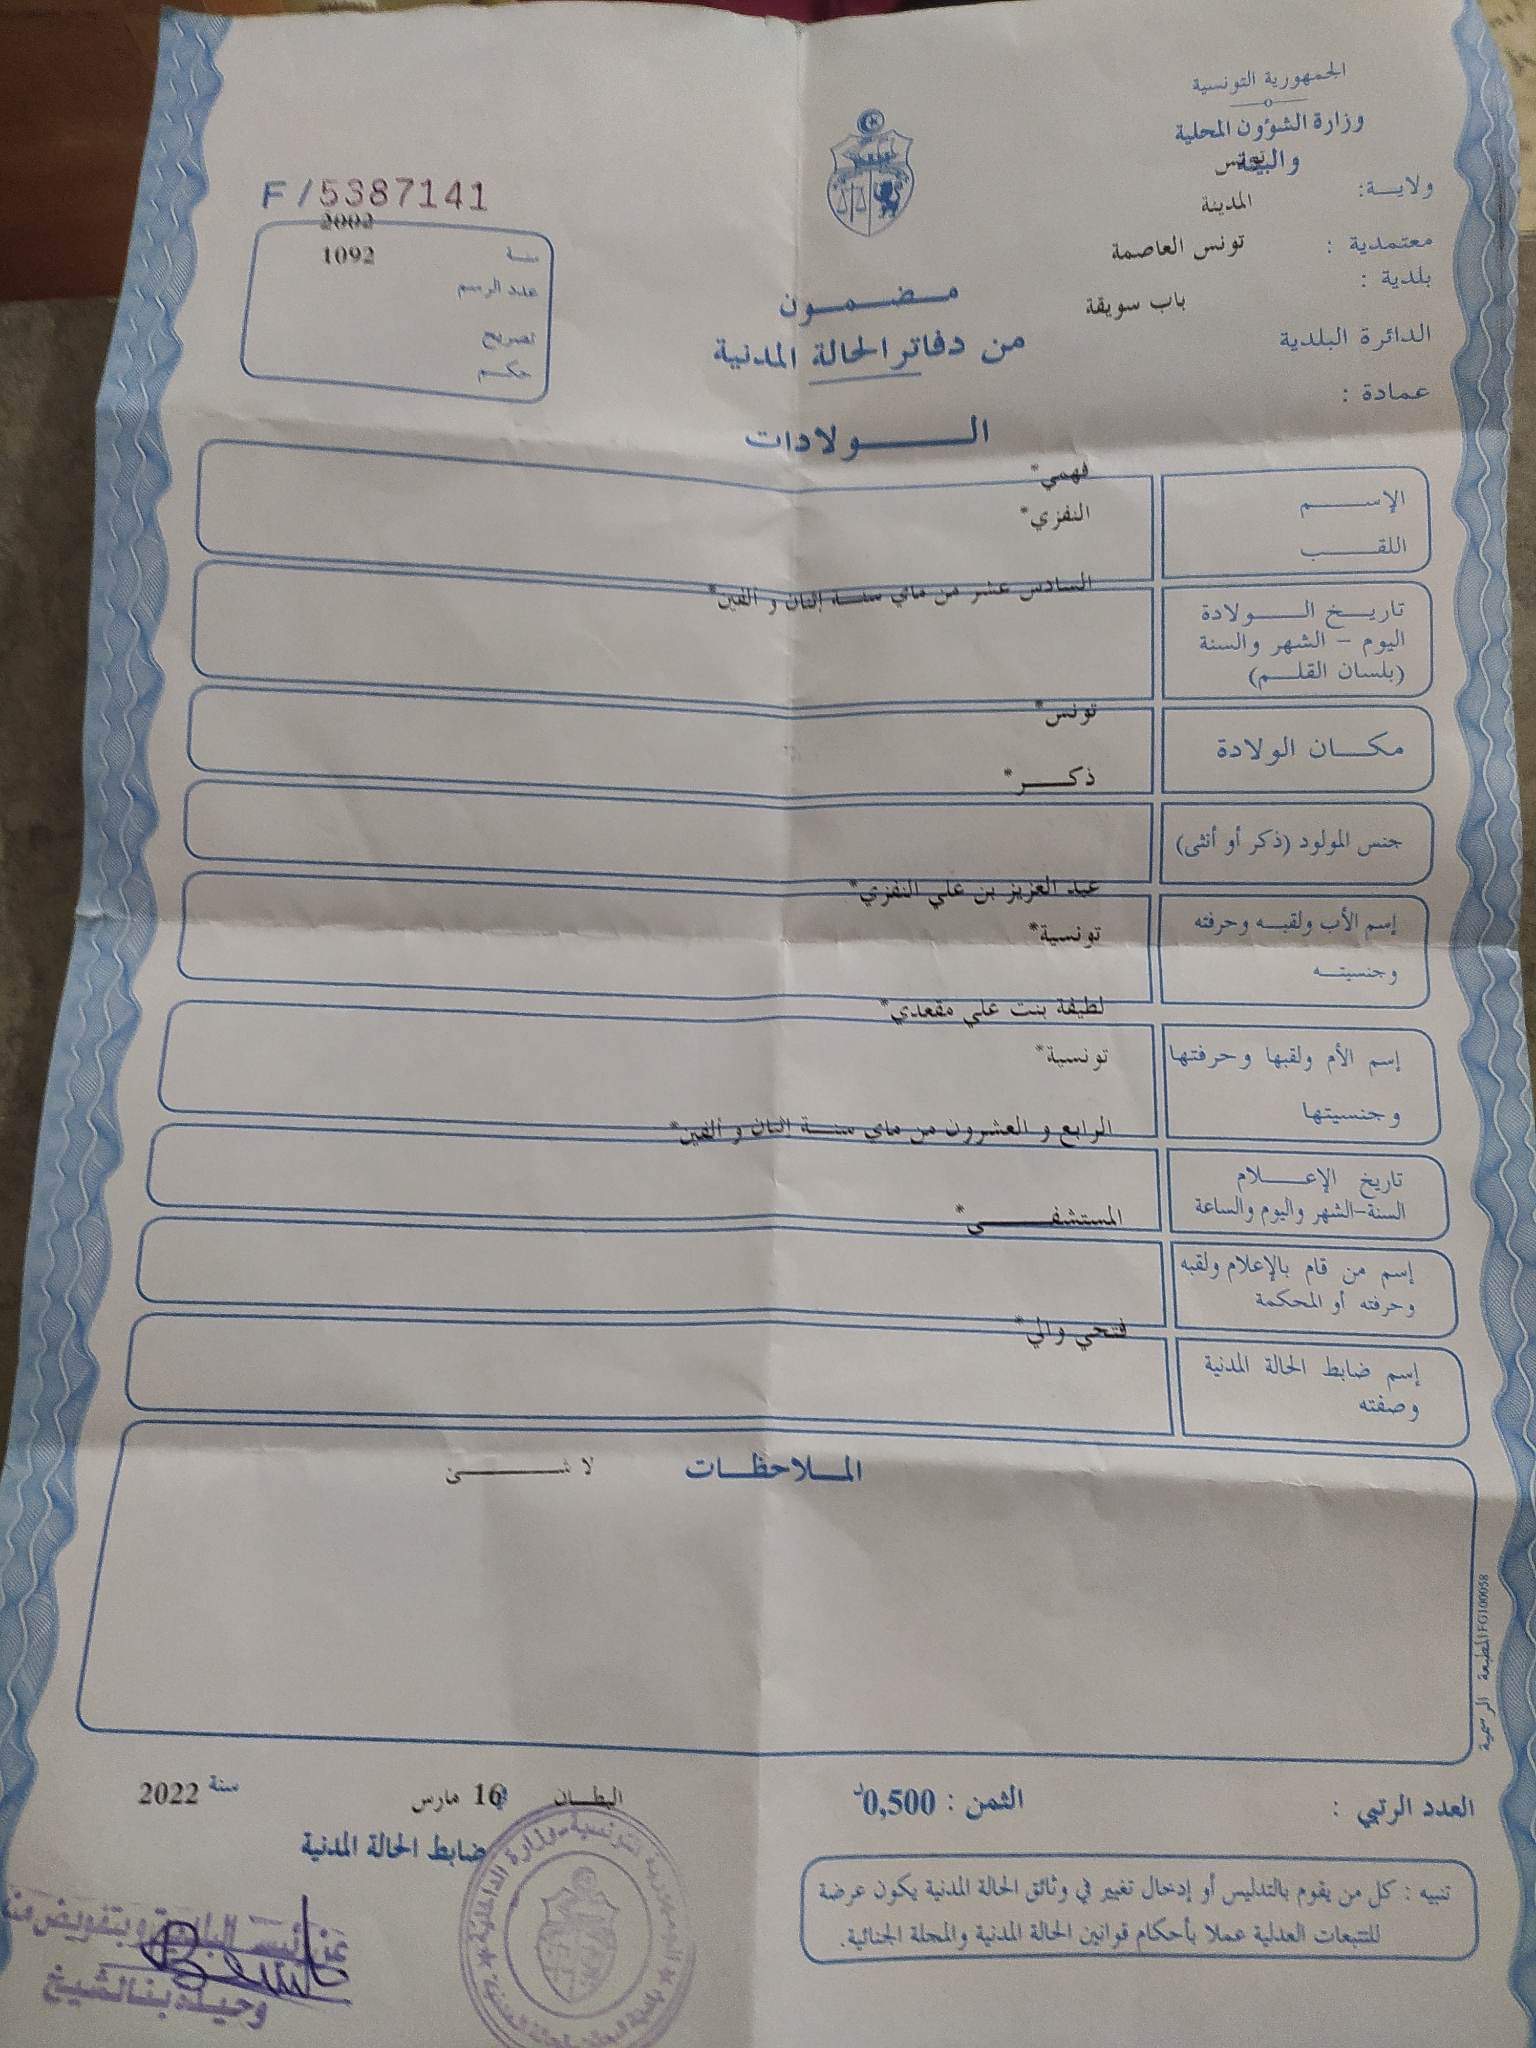 الجمهورية التونسية
وزارة الشؤون المحلية
والبيئة
ولاية: تونس
معتمدية : المدينة
بلدية : تونس العاصمة
الدائرة البلدية باب سويقة
عمادة :
F/5387141
سنة 2002
عدد الرسم 1092
تصريح
حكم
مضمون
من دفاتر الحالة المدنية
الولادات
الإسم فهمي*
اللقب النفزي*
تاريخ الولادة السادس عشر من ماي سنة إثنان و ألفين*
اليوم - الشهر والسنة
(بلسان القلم)
مكان الولادة تونس*
جنس المولود (ذكر أو أنثى) ذكر*
إسم الأب ولقبه وحرفته عبد العزيز بن علي النفزي*
وجنسيته تونسية*
إسم الأم ولقبها وحرفتها لطيفة بنت علي مقعدي*
وجنسيتها تونسية*
تاريخ الإعلام الرابع و العشرون من ماي سنة إثنان و ألفين*
السنة-الشهر واليوم والساعة
إسم من قام بالإعلام ولقبه المستشفى*
وحرفته أو المحكمة
إسم ضابط الحالة المدنية فتحي والي*
وصفته
الملاحظات لا شئ
المطبعة الرسمية FG100058
العدد الرتبي :
الثمن : 0,500د
البطان 16 مارس سنة 2022
ضابط الحالة المدنية
تنبيه : كل من يقوم بالتدليس أو إدخال تغيير في وثائق الحالة المدنية يكون عرضة
للتتبعات العدلية عملا بأحكام قوانين الحالة المدنية والمجلة الجنائية.
عن رئيس البلدية و بتفويض منه
وحيدة بنالشيخ
الجمهورية التونسية - وزارة الداخلية